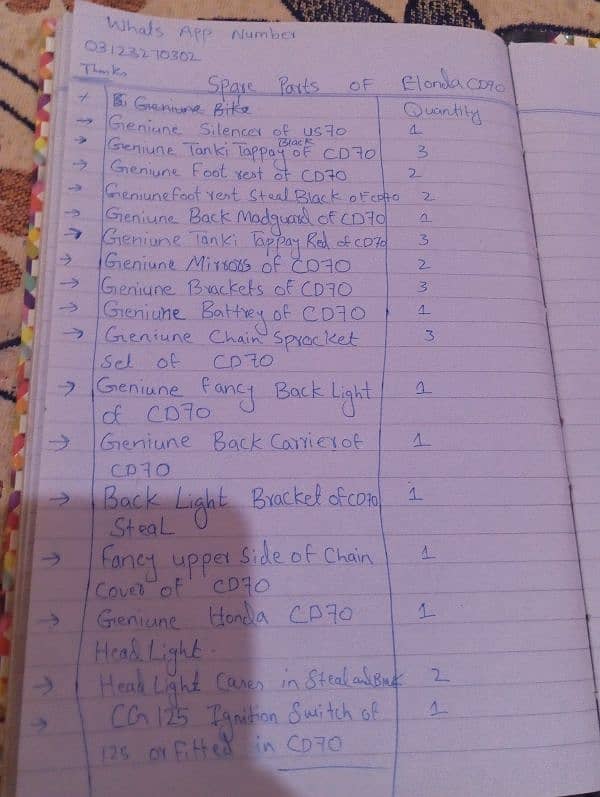 Whats App Number
03123270302
Thanks
Spare Parts OF Honda CD70
Geniune Bike Quantity
→ Geniune Silencer of US70 1
→ Geniune Tanki Tappay Black of CD70 3
→ Geniune Foot rest of CD70 2
→ Geniune foot rent Steal Black of CD70 2
→ Geniune Back Madguard of CD70 1
→ Geniune Tanki Tappay Red of CD70 3
→ Geniune Mirrors of CD70 2
→ Geniune Brackets of CD70 3
→ Geniune Battrey of CD70 1
→ Geniune Chain Sprocket 3
Set of CD70
→ Geniune fancy Back Light 1
of CD70
→ Geniune Back Carrier of 1
CD70
→ Back Light Bracket of CD70 1
Steal
→ Fancy upper Side of Chain 1
Cover of CD70
→ Geniune Honda CD70 1
Head Light.
→ Head Light Cases in Steal and 2
→ CG 125 Ignition Switch of 1
125 or Fitted in CD70